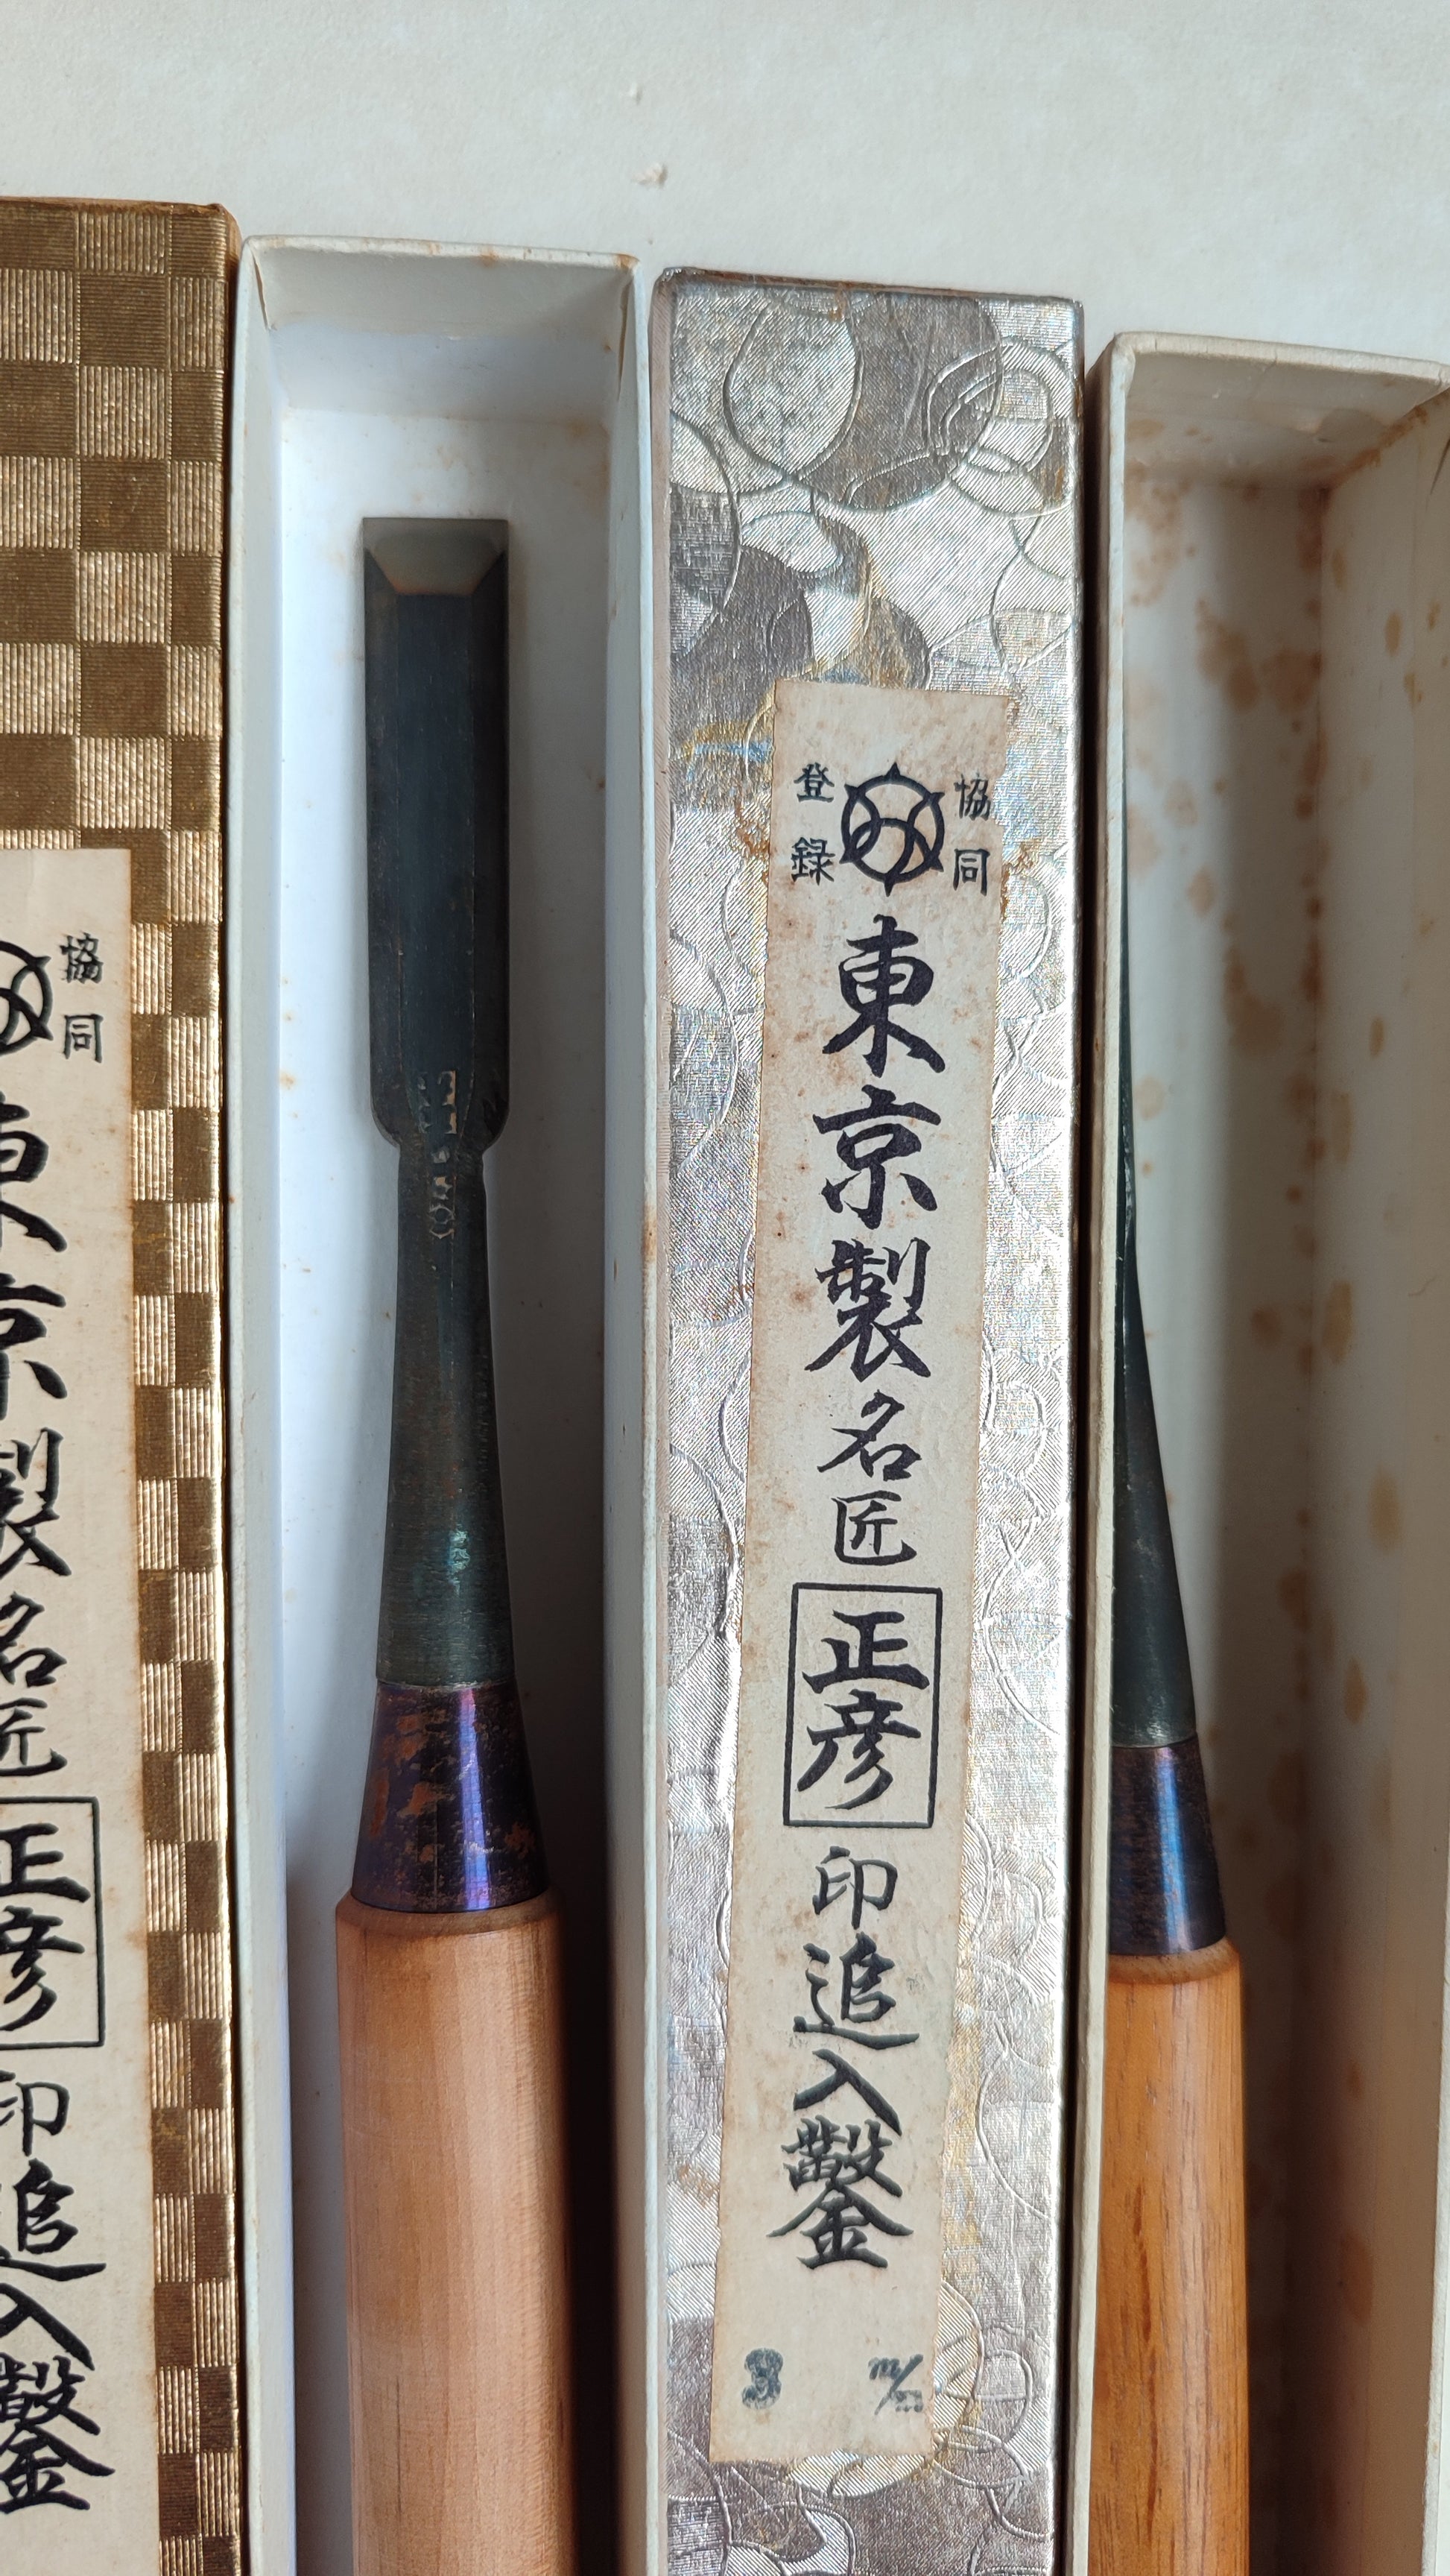 協同
登録
東京製名匠
正彦
印追入鑿
3 m/m
協同
東京製名匠
正彦
印追入鑿